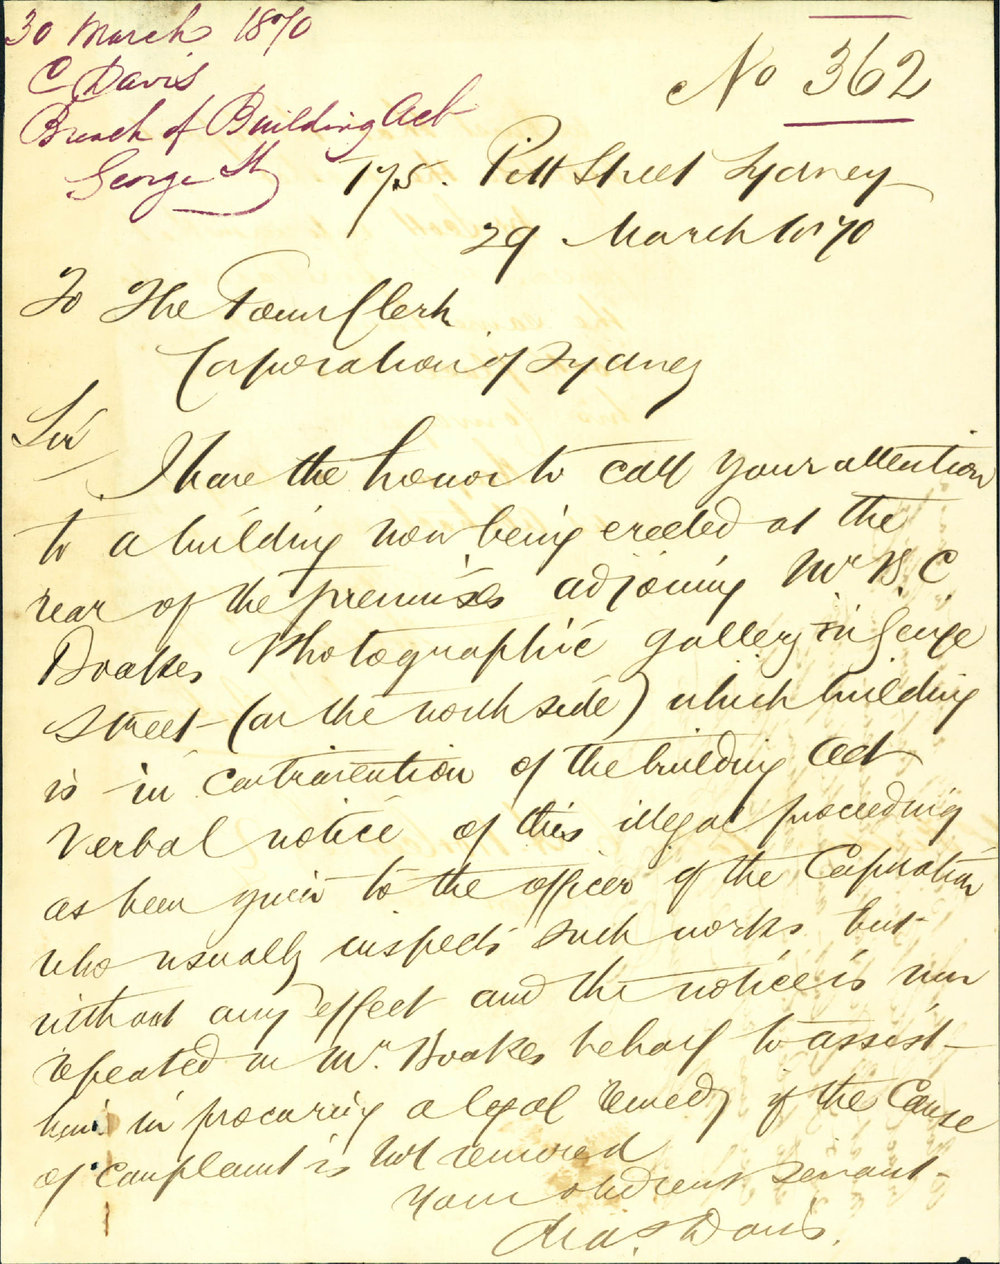 30 March 1870
C Davis
Breach of Building Act
George St
No 362
175. Pitt Street Sydney
29 March 1870
To The Town Clerk
Corporation of Sydney
Sir
I have the honor to call your attention
to a building now being erected at the
rear of the premises adjoining Mr B C
Boakes Photographic gallery in George
Street (on the north side) which building
is in contravention of the building Act
Verbal notice of this illegal proceeding
as been given to the officer of the Corporation
who usually inspects such works but
without any effect and the notice is now
repeated on Mr. Boakes behalf to assist
him in procuring a legal remedy if the Cause
of complaint is not removed
Your obedient servant
Chas. Davis.